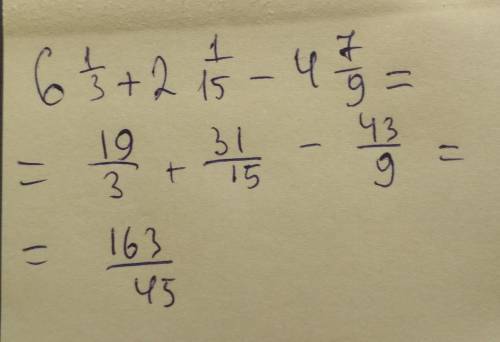 6 1/3 + 2 1/15 - 4 7/9 =
= 19/3 + 31/15 - 43/9 =
= 163/45